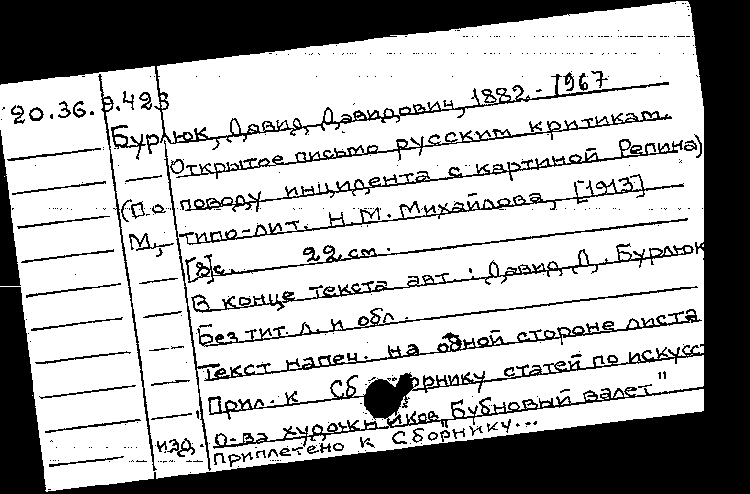 20.36.9.423
Бурлюк, Давид Давидович, 1882 - 1967
Открытое письмо русским критикам.
(По поводу инцидента с картиной Репина)
М., типо-лит. Н.М. Михайлова, [1913]
[8]с. 22 см.
В конце текста авт.: Давид Д. Бурлюк
Без тит. л. и обл.
Текст напеч. на одной стороне листа
Прил. к Сборнику статей по искусст
изд. о-ва художников "Бубновый валет"
Приплетено к Сборнику...